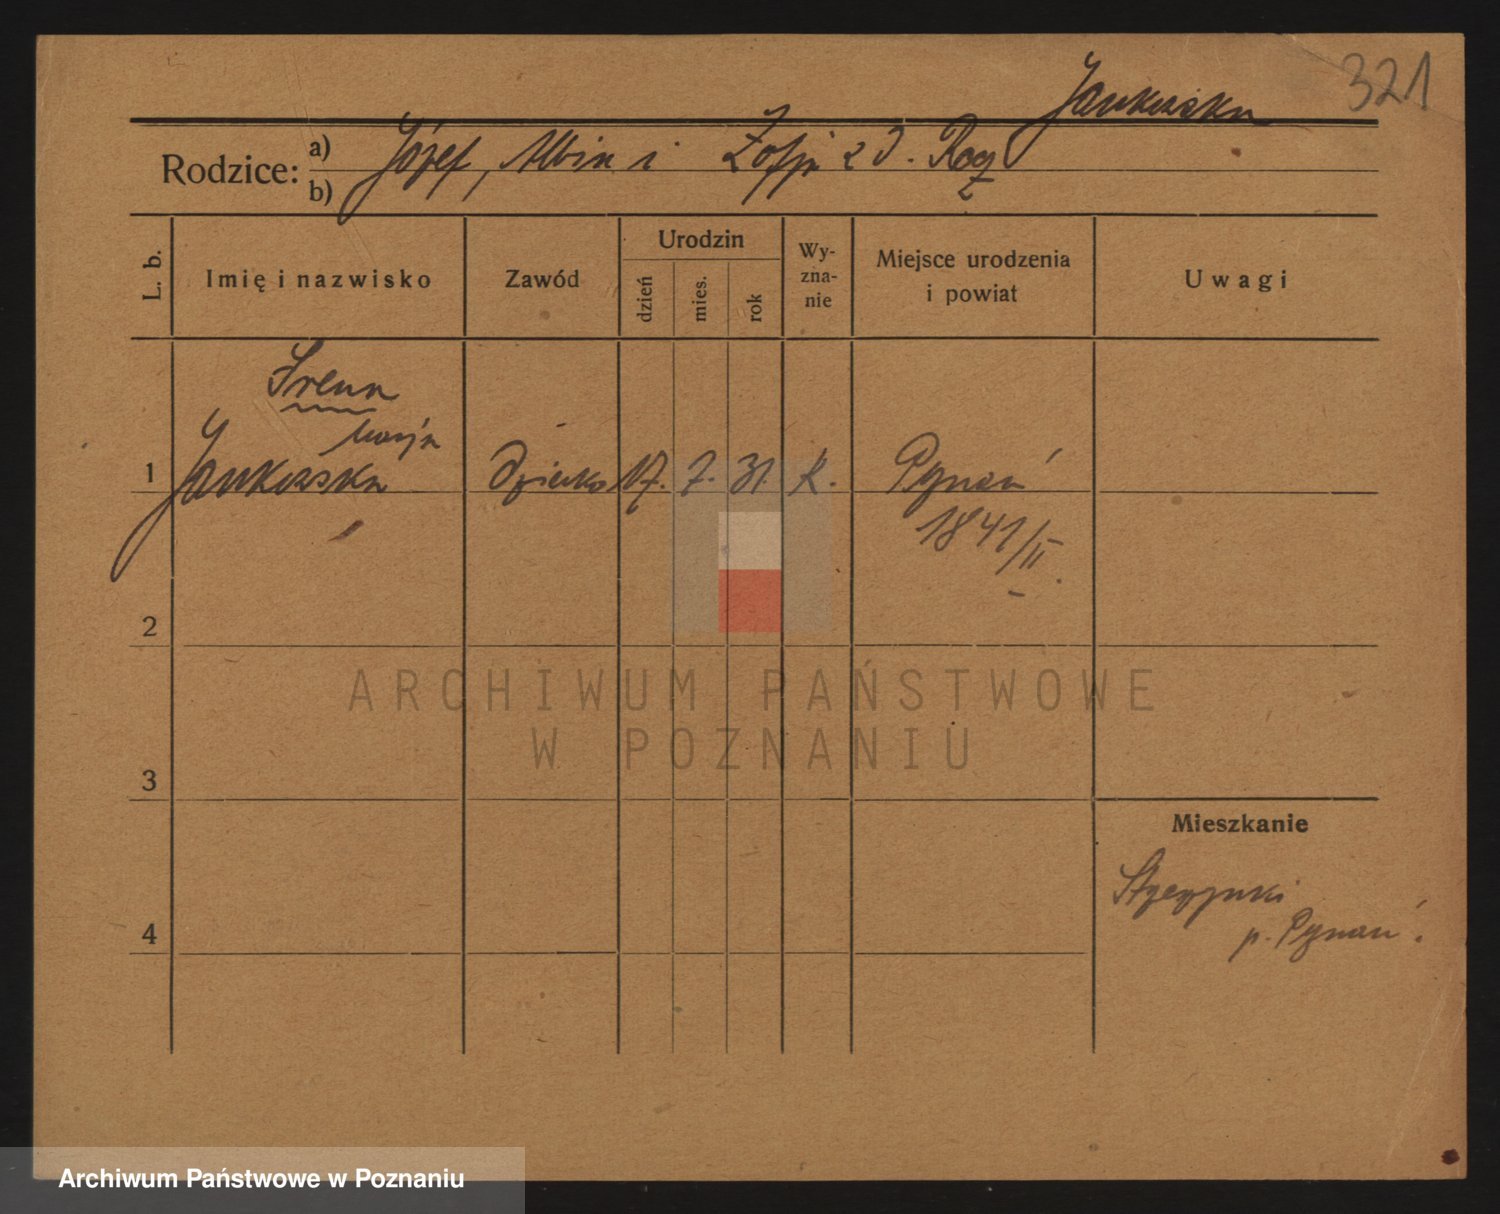 321
Jankowska
Rodzice: a) b) Józef, Albin i Zofja z d. Rog
L. b.
Imię i nazwisko
Zawód
Urodzin
dzień
mies.
rok
Wy-
zna-
nie
Miejsce urodzenia
i powiat
Uwagi
Irena
Marja
1 Jankowska dziecko 17. 7. 31. K. Poznań
1841/II.
2
3
4
Mieszkanie
p. Poznań.
ARCHIWUM PAŃSTWOWE
W POZNANIU
Archiwum Państwowe w Poznaniu